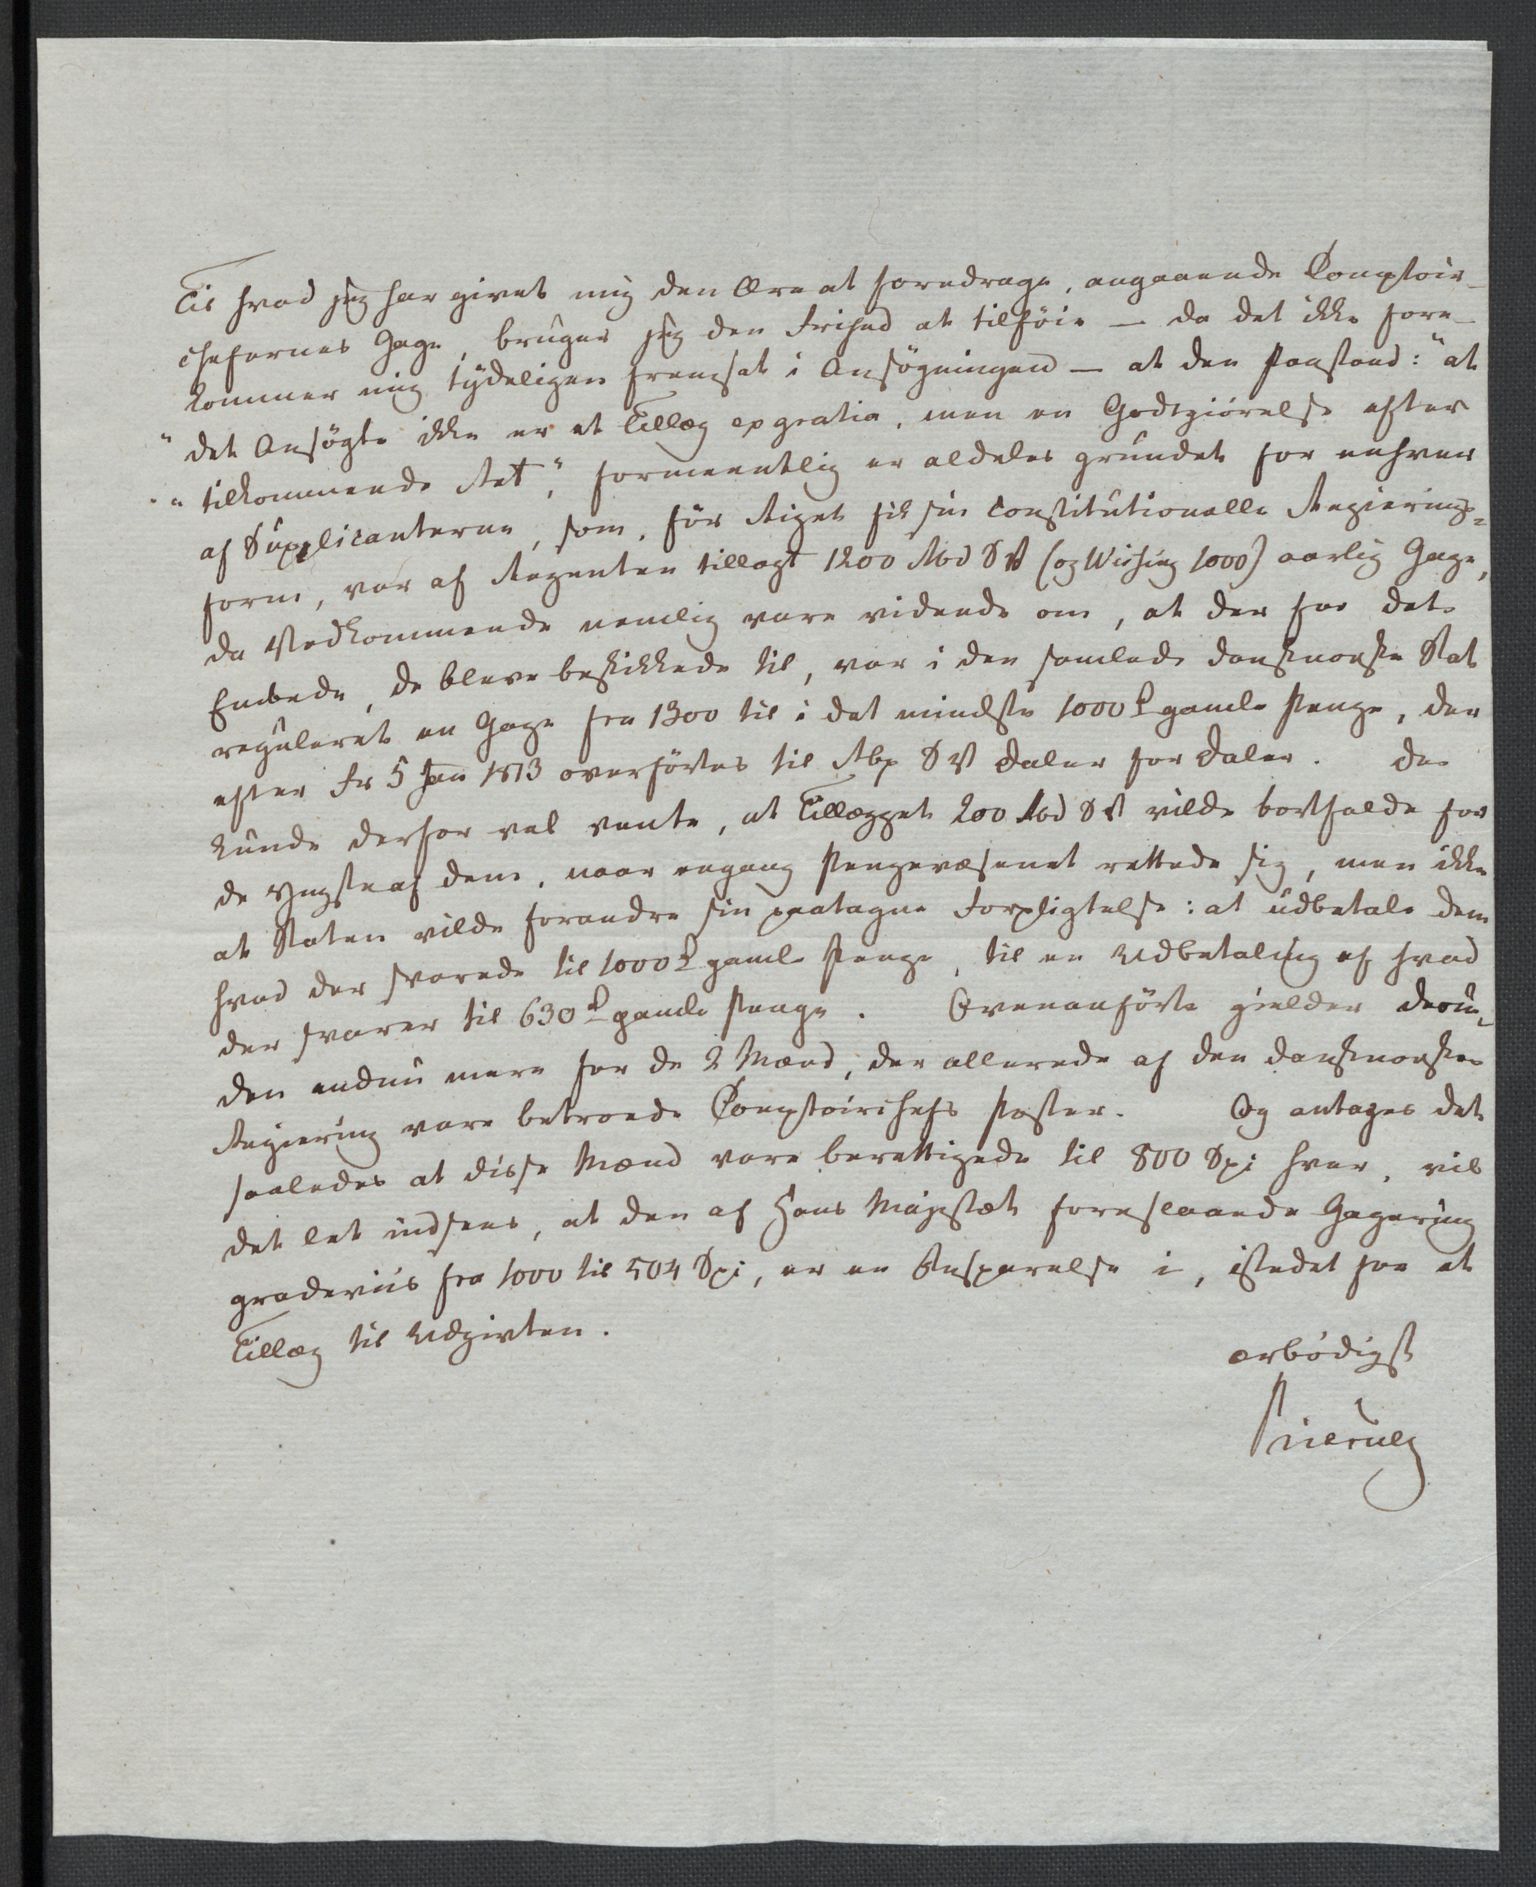 Til hvad jeg har givet mig den Ære at foredrage, angaaende Comptoir-
chefernes Gage, bruger jeg den Frihed at tilföie — da det ikke fore-
kommer mig tydeligen fremsat i Ansøgningen — at den Paastand: "at
"det Ansøgte ikke er et Tillæg ex gratia, men en Godtgiörelse efter
"tilkommende Ret", formeentlig er aldeles grundet for enhver
af Supplicanterne, som, för Riget fik sin constitutionelle Regierings-
form, var af Regenten tillagt 1200 Rbd SV (og Wissing 1000) aarlig Gage,
da Vedkommende nemlig vare vidende om, at der for det
Embede, de bleve beskikkede til, var i den samlede dansknorske Stat
reguleret en Gage fra 1300 til i det mindste 1000 Rd gamle Penge, der
efter Fr 5 Jan 1813 overförtes til Rbp SV Daler for Daler. De
kunde derfor vel vente, at Tillægget 200 Rbd SV vilde bortfalde for
de yngste af dem, naar engang Pengevæsenet rettede sig, men ikke
at Staten vilde forandre sin paatagne Forpligtelse: at udbetale dem
hvad der svarede til 1000 Rd gamle Penge, til en Udbetaling af hvad
der svarer til 630 Rd gamle Penge. Ovenanförte gielder desu-
den endnu mere for de 2 Mænd, der allerede af den dansknorske
Regiering vare betroede Comptoirchefs Poster. Og antages det
saaledes at disse Mænd vare berettigede til 800 Spi hver, vil
det let indsees, at den af Hans Majestæt foreslaaede Gagering
gradeviis fra 1000 til 504 Spi, er en Besparelse i, istedet for et
Tillæg til Udgivten.
ærbödigst